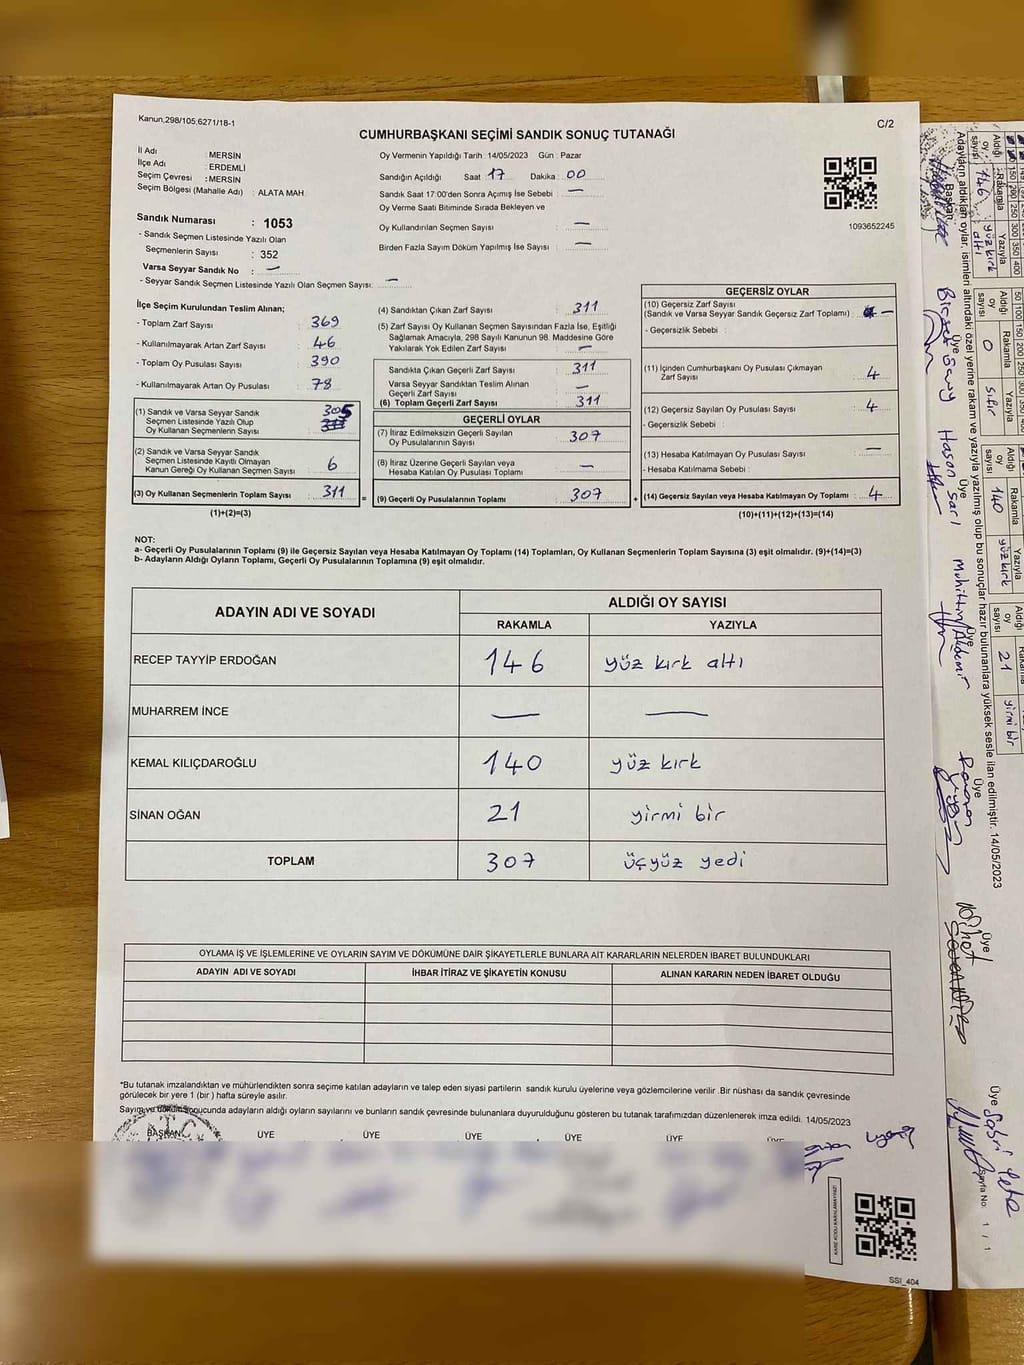 Kanun,298/105,6271/18-1
C/2
CUMHURBAŞKANI SEÇİMİ SANDIK SONUÇ TUTANAĞI
İl Adı : MERSİN
İlçe Adı : ERDEMLİ
Seçim Çevresi : MERSİN
Seçim Bölgesi (Mahalle Adı) : ALATA MAH.
Sandık Numarası : 1053
- Sandık Seçmen Listesinde Yazılı Olan
Seçmenlerin Sayısı : 352
Varsa Seyyar Sandık No : —
- Seyyar Sandık Seçmen Listesinde Yazılı Olan Seçmen Sayısı: —
Oy Vermenin Yapıldığı Tarih : 14/05/2023 Gün : Pazar
Sandığın Açıldığı Saat 17 Dakika : 00
Sandık Saat 17:00'den Sonra Açımış İse Sebebi : —
Oy Verme Saati Bitiminde Sırada Bekleyen ve
Oy Kullandırılan Seçmen Sayısı : —
Birden Fazla Sayım Döküm Yapılmış İse Sayısı : —
1093652245
İlçe Seçim Kurulundan Teslim Alınan;
- Toplam Zarf Sayısı : 369
- Kullanılmayarak Artan Zarf Sayısı : 46
- Toplam Oy Pusulası Sayısı : 390
- Kullanılmayarak Artan Oy Pusulası : 78
(1) Sandık ve Varsa Seyyar Sandık
Seçmen Listesinde Yazılı Olup
Oy Kullanan Seçmenlerin Sayısı : 305
(2) Sandık ve Varsa Seyyar Sandık
Seçmen Listesinde Kayıtlı Olmayan
Kanun Gereği Oy Kullanan Seçmen Sayısı : 6
(3) Oy Kullanan Seçmenlerin Toplam Sayısı : 311
(1)+(2)=(3)
(4) Sandıktan Çıkan Zarf Sayısı : 311
(5) Zarf Sayısı Oy Kullanan Seçmen Sayısından Fazla İse, Eşitliği
Sağlamak Amacıyla, 298 Sayılı Kanunun 98. Maddesine Göre
Yakılarak Yok Edilen Zarf Sayısı : —
Sandıkta Çıkan Geçerli Zarf Sayısı : 311
Varsa Seyyar Sandıktan Teslim Alınan
Geçerli Zarf Sayısı : —
(6) Toplam Geçerli Zarf Sayısı : 311
GEÇERLİ OYLAR
(7) İtiraz Edilmeksizin Geçerli Sayılan
Oy Pusulalarının Sayısı : 307
(8) İtiraz Üzerine Geçerli Sayılan veya
Hesaba Katılan Oy Pusulası Toplamı : —
= (9) Geçerli Oy Pusulalarının Toplamı : 307
GEÇERSİZ OYLAR
(10) Geçersiz Zarf Sayısı
(Sandık ve Varsa Seyyar Sandık Geçersiz Zarf Toplamı) : —
- Geçersizlik Sebebi :
(11) İçinden Cumhurbaşkanı Oy Pusulası Çıkmayan
Zarf Sayısı : 4
(12) Geçersiz Sayılan Oy Pusulası Sayısı : 4
- Geçersizlik Sebebi :
(13) Hesaba Katılmayan Oy Pusulası Sayısı : —
- Hesaba Katılmama Sebebi :
+ (14) Geçersiz Sayılan veya Hesaba Katılmayan Oy Toplamı : 4
(10)+(11)+(12)+(13)=(14)
NOT:
a- Geçerli Oy Pusulalarının Toplamı (9) ile Geçersiz Sayılan veya Hesaba Katılmayan Oy Toplamı (14) Toplamları, Oy Kullanan Seçmenlerin Toplam Sayısına (3) eşit olmalıdır. (9)+(14)=(3)
b- Adayların Aldığı Oyların Toplamı, Geçerli Oy Pusulalarının Toplamına (9) eşit olmalıdır.
ADAYIN ADI VE SOYADI
ALDIĞI OY SAYISI
RAKAMLA YAZIYLA
RECEP TAYYİP ERDOĞAN 146 yüz kırk altı
MUHARREM İNCE — —
KEMAL KILIÇDAROĞLU 140 yüz kırk
SİNAN OĞAN 21 yirmi bir
TOPLAM 307 üçyüz yedi
OYLAMA İŞ VE İŞLEMLERİNE VE OYLARIN SAYIM VE DÖKÜMÜNE DAİR ŞİKAYETLERLE BUNLARA AİT KARARLARIN NELERDEN İBARET BULUNDUKLARI
ADAYIN ADI VE SOYADI İHBAR İTİRAZ VE ŞİKAYETİN KONUSU ALINAN KARARIN NEDEN İBARET OLDUĞU
*Bu tutanak imzalandıktan ve mühürlendikten sonra seçime katılan adayların ve talep eden siyasi partilerin sandık kurulu üyelerine veya gözlemcilerine verilir .Bir nüshası da sandık çevresinde
görülecek bir yere 1 (bir ) hafta süreyle asılır.
Sayım ve döküm sonucunda adayların aldığı oyların sayılarını ve bunların sandık çevresinde bulunanlara duyurulduğunu gösteren bu tutanak tarafımızdan düzenlenerek imza edildi. 14/05/2023
BAŞKAN ÜYE ÜYE ÜYE ÜYE ÜYE
T.C.
SSI_404
Aldığı oy sayısı Rakamla 146 Yazıyla yüz kırk altı
Aldığı oy sayısı Rakamla 0 Yazıyla sıfır
Aldığı oy sayısı Rakamla 140 Yazıyla yüz kırk
Aldığı oy sayısı 21 yirmi bir
Adayların aldıkları oylar, isimleri altındaki özel yerine rakam ve yazıyla yazılmış olup bu sonuçlar hazır bulunanlara yüksek sesle ilan edilmiştir. 14/05/2023
Başkan
Üye
Üye Hasan Sarı
Üye
Üye
Üye
Üye Sabri
Sayfa No: 1 / 1